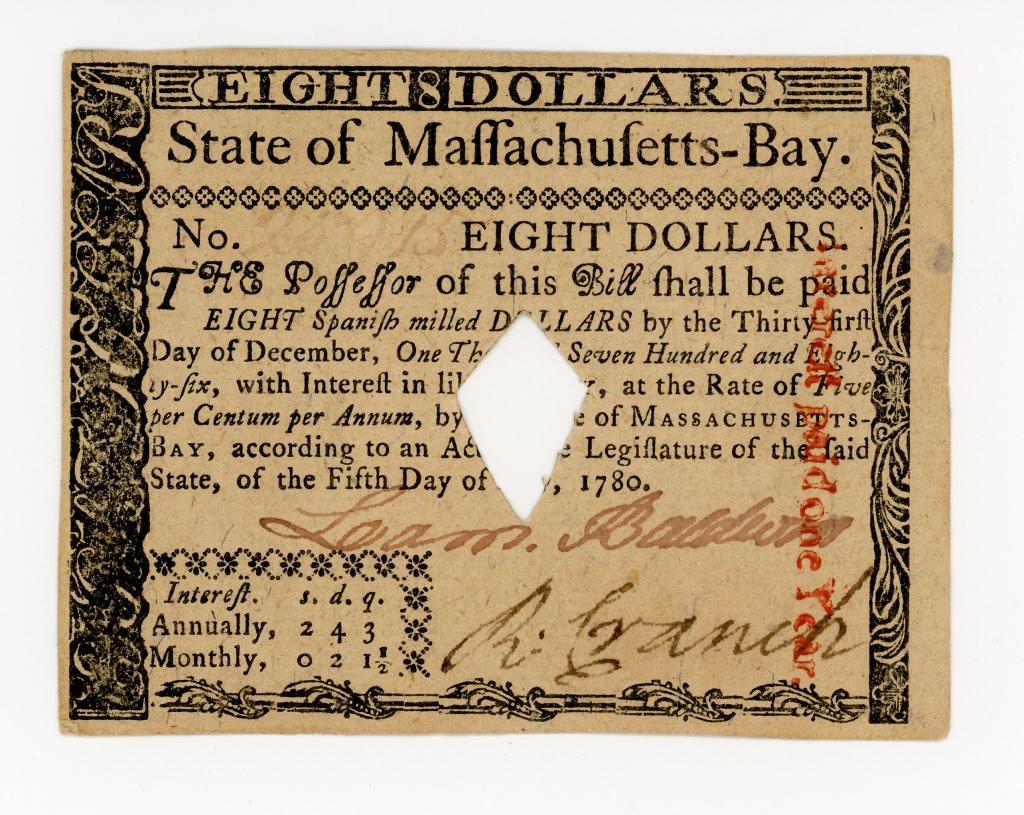 EIGHT 8 DOLLARS.
State of Maſſachuſetts-Bay.
No. EIGHT DOLLARS.
THE Poſſeſſor of this Bill ſhall be paid
EIGHT Spaniſh milled D LLARS by the Thirty-firſt
Day of December, One Th Seven Hundred and Eigh-
ty-ſix, with Intereſt in li r, at the Rate of Five
per Centum per Annum, by e of MASSACHUSETTS-
BAY, according to an Ac e Legiſlature of the ſaid
State, of the Fifth Day of y, 1780.
Loam. Baldwin
R: Cranch
Intereſt. s. d. q.
Annually, 2 4 3
Monthly, 0 2 1½
Intereſt paid one Year.